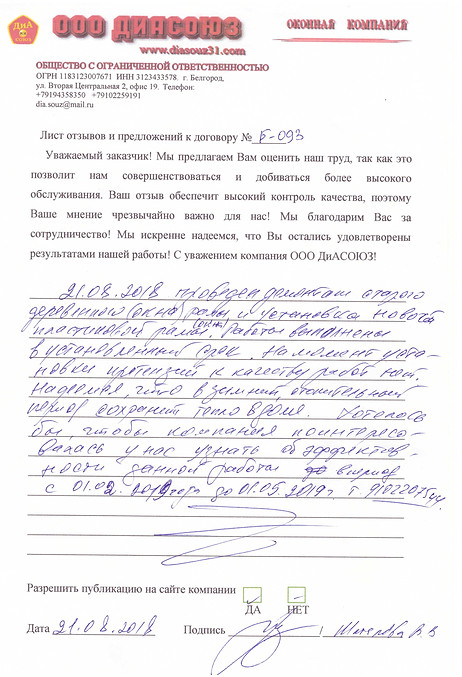 ДиА
СОЮЗ
ООО ДИАСОЮЗ
ОКОННАЯ КОМПАНИЯ
www.diasouz31.com
ОБЩЕСТВО С ОГРАНИЧЕННОЙ ОТВЕТСТВЕННОСТЬЮ
ОГРН 1183123007671 ИНН 3123433578. г. Белгород,
ул. Вторая Центральная 2, офис 19. Телефон:
+79194358350 +79102259191
dia.souz@mail.ru
Лист отзывов и предложений к договору № Б-093
Уважаемый заказчик! Мы предлагаем Вам оценить наш труд, так как это
позволит нам совершенствоваться и добиваться более высокого
обслуживания. Ваш отзыв обеспечит высокий контроль качества, поэтому
Ваше мнение чрезвычайно важно для нас! Мы благодарим Вас за
сотрудничество! Мы искренне надеемся, что Вы остались удовлетворены
результатами нашей работы! С уважением компания ООО ДиАСОЮЗ!
21.08.2018 проведен демонтаж старого
деревянного (окна) рамы и установка новой
пластиковой рамы (окна). Работы выполнены
в установленный срок. На момент уста-
новки претензий к качеству работ нет.
Надеемся, что в зимний отопительный
период сохранит тепло в доме. Хотелось
бы, чтобы компания поинтересо
валась у нас узнать об эффектив-
ности данной работы в период
с 01.02.2019 года до 01.05.2019г т. 9102207544
Разрешить публикацию на сайте компании
ДА НЕТ
Дата 21.08.2018 Подпись / В.В